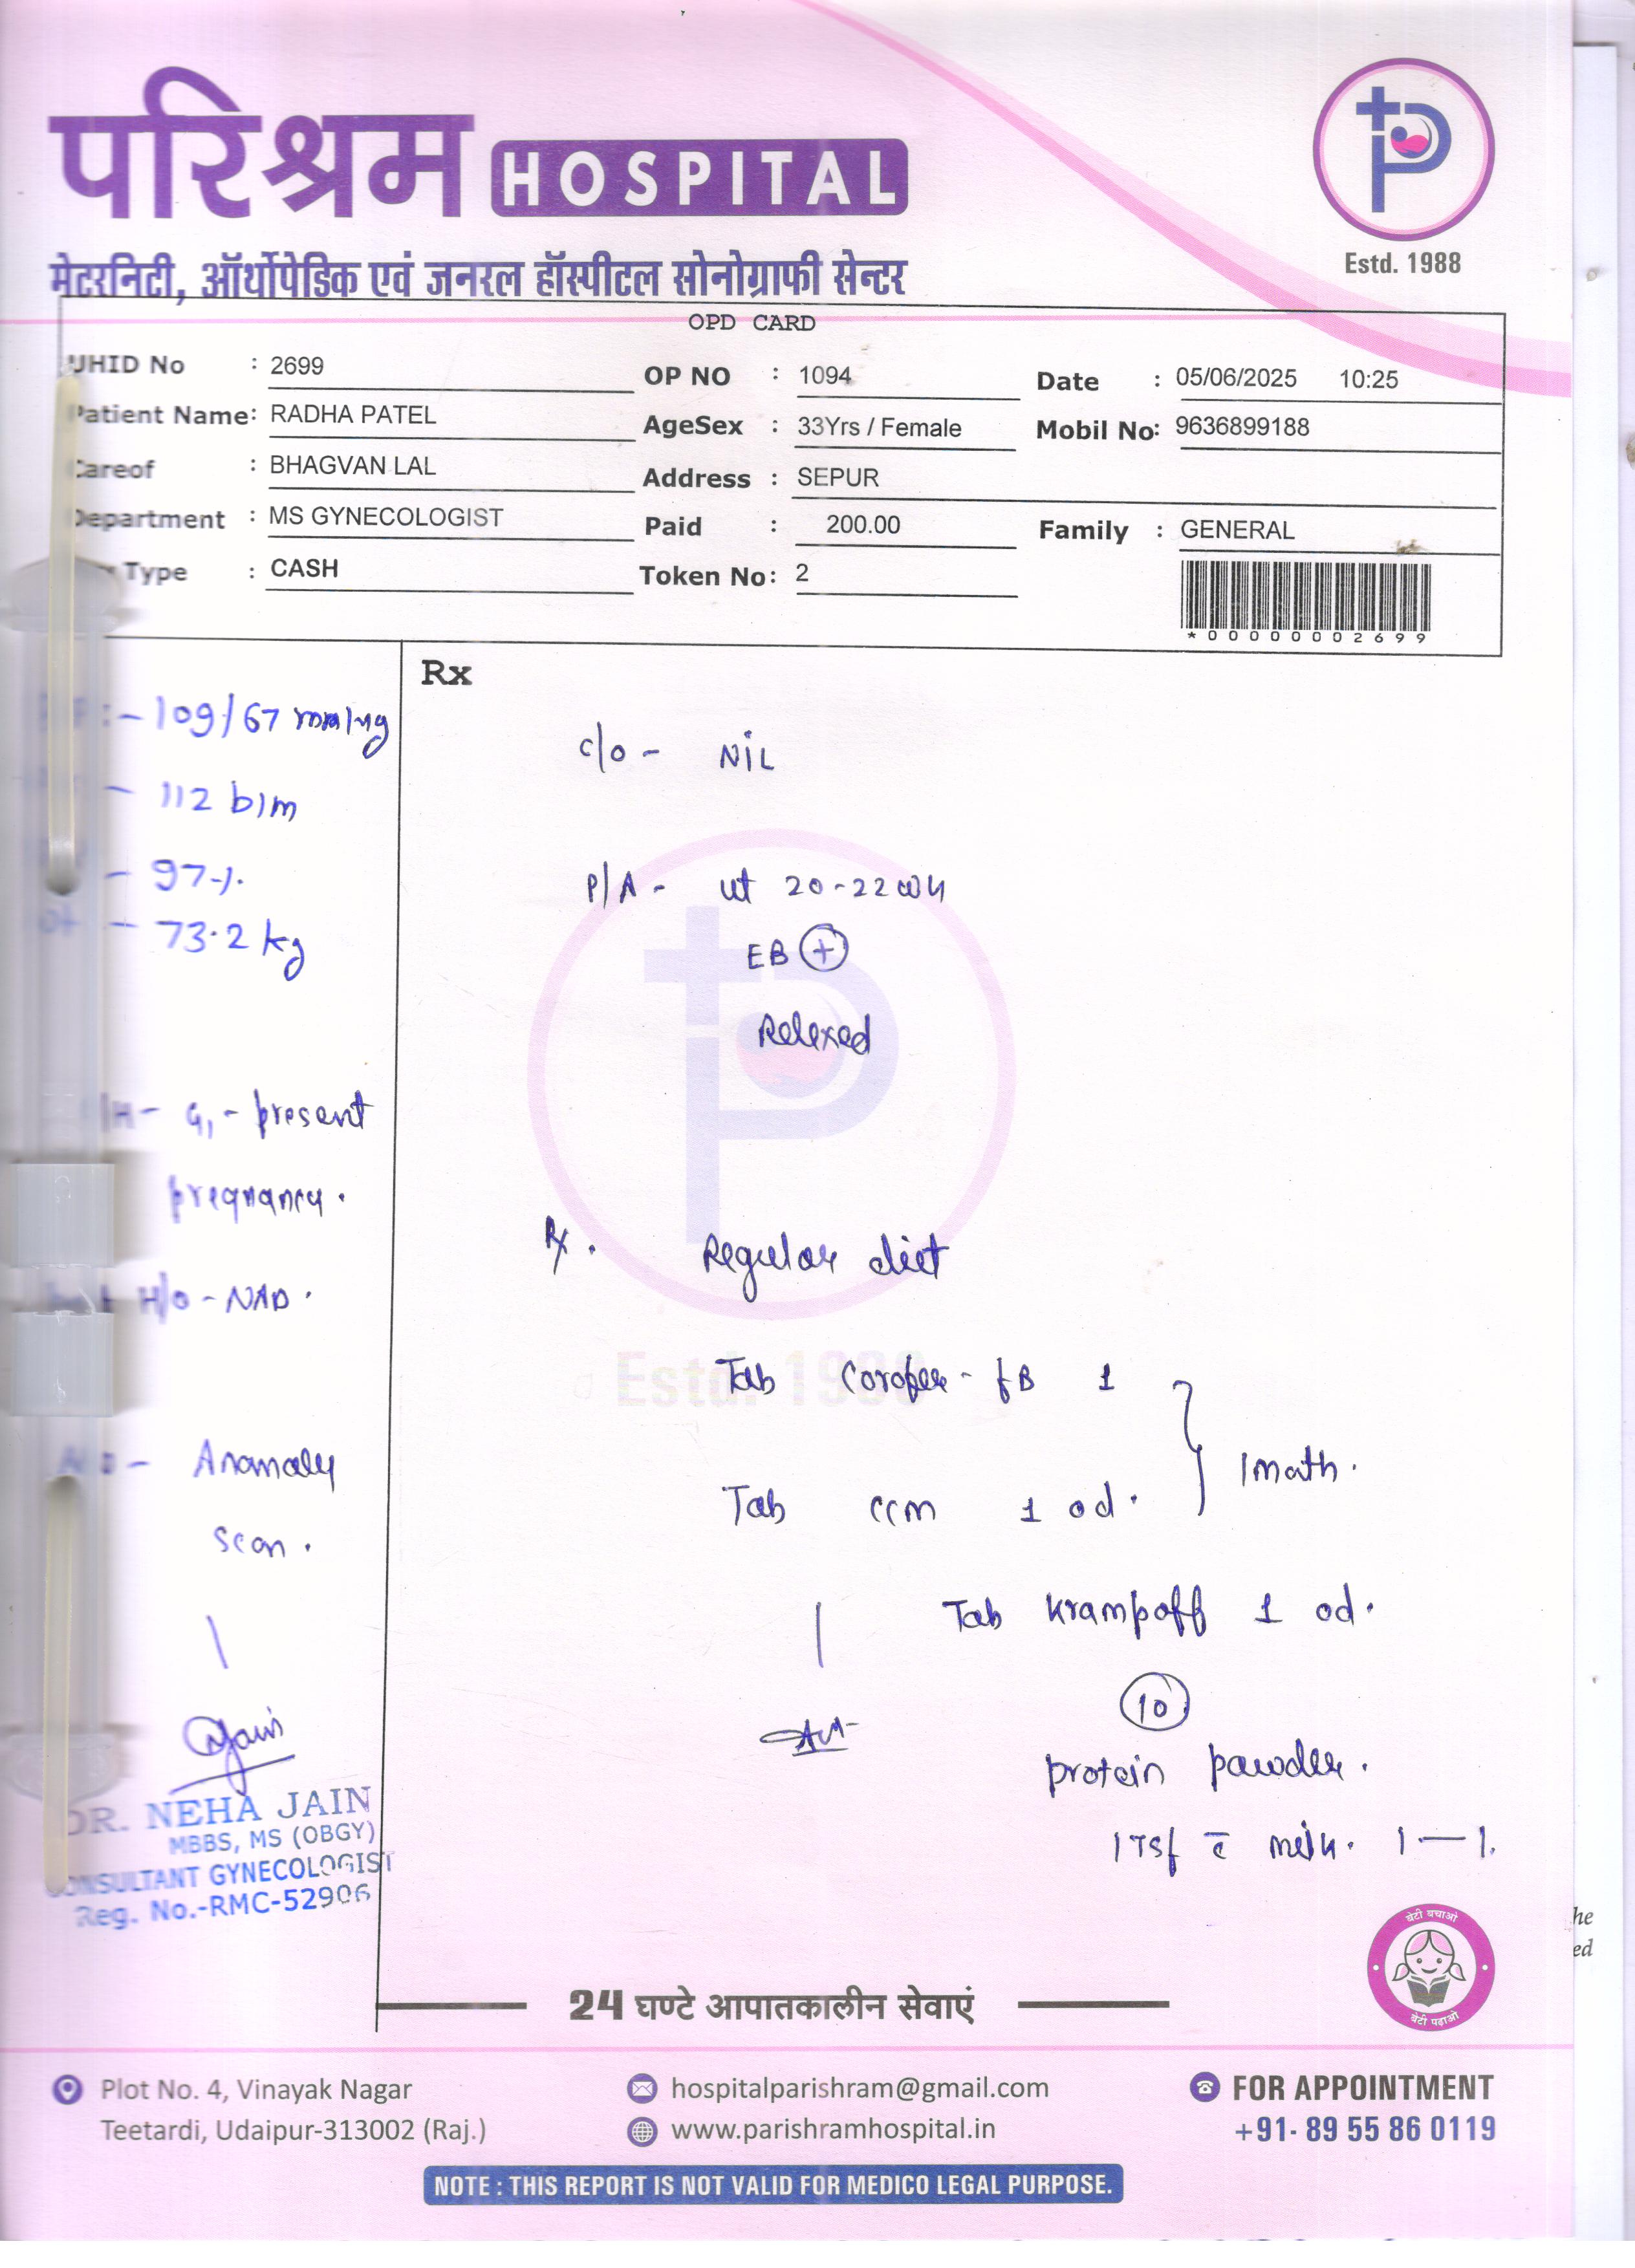 परिश्रम HOSPITAL
मेटरनिटी, ऑर्थोपेडिक एवं जनरल हॉस्पीटल सोनोग्राफी सेन्टर
Estd. 1988
OPD CARD
UHID No : 2699
OP NO : 1094
Date : 05/06/2025 10:25
Patient Name: RADHA PATEL
AgeSex : 33Yrs / Female
Mobil No: 9636899188
Careof : BHAGVAN LAL
Address : SEPUR
Department : MS GYNECOLOGIST
Paid : 200.00
Family : GENERAL
Type : CASH
Token No: 2
*00000002699
:- 109/67 mmHg
- 112 b/m
- 97%
- 73.2 kg
H - G1 - present
pregnancy.
H/o - NAD.
- Anomaly
Scan.
Jain
DR. NEHA JAIN
MBBS, MS (OBGY)
CONSULTANT GYNECOLOGIST
Reg. No.-RMC-52906
Rx
c/o - NIL
P/A - ut 20-22 wk
EB +
Relexed
Rx. Regular diet
Tab Corofer - fB 1
Tab CCM 1 od.
1 month.
Tab Krampoff 1 od.
10
protein powder.
1 Tsf c̄ milk. 1—1.
Estd. 1988
बेटी बचाओ
बेटी पढ़ाओ
he
ed
24 घण्टे आपातकालीन सेवाएं
Plot No. 4, Vinayak Nagar
Teetardi, Udaipur-313002 (Raj.)
hospitalparishram@gmail.com
www.parishramhospital.in
FOR APPOINTMENT
+91- 89 55 86 0119
NOTE : THIS REPORT IS NOT VALID FOR MEDICO LEGAL PURPOSE.